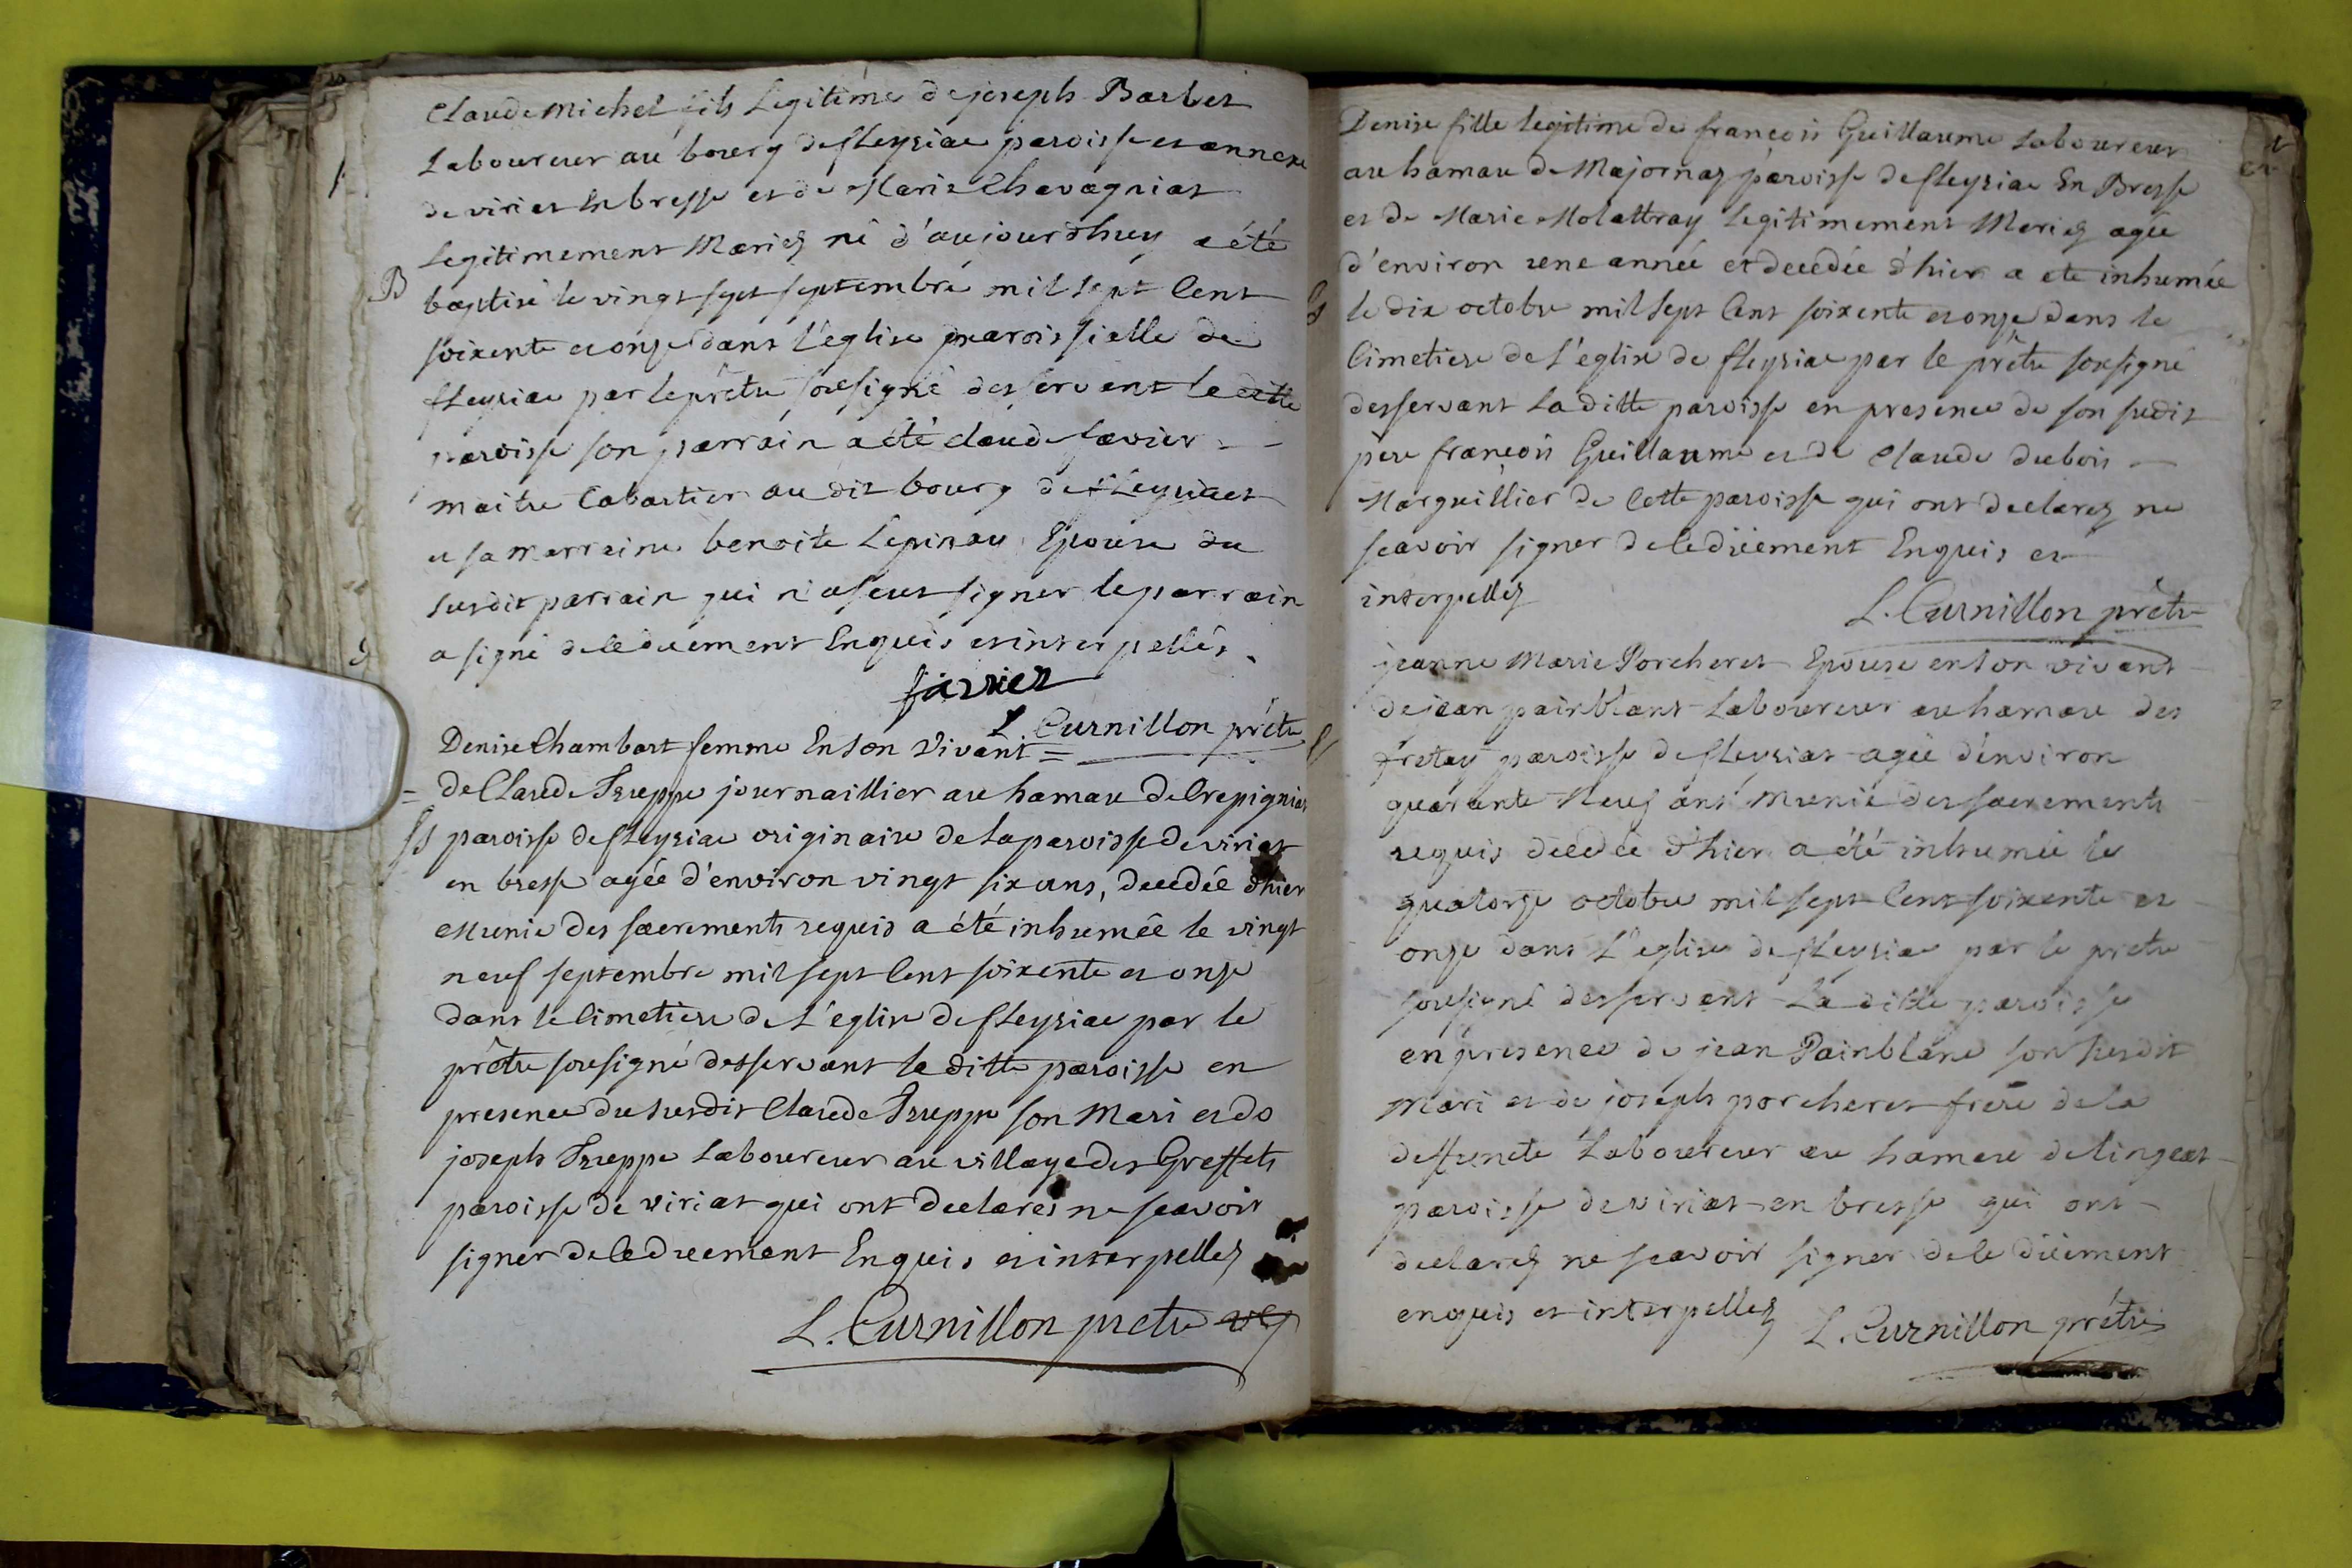 Claude Michel fils Legitime de joseph Barbet
Laboureur au bourg de fleyriac paroisse et annexe
de viriat En bresse et de Marie Chavagniat
Legitimement Mariez né d'aujourdhuy a été
B baptisé le vingt sept septembre mil sept Cent
soixente et onze dans L'eglise paroissielle de
fleyriac par le prêtre sousigné desservent la ditte
paroisse son parrain a été claude favier
maitre Cabartier au dit bourg de fleyriat
et sa marraine benoite Lepinau Epouse du
susdit parrain qui n'a seut signer le parrain
a signé de ce duement Enquis et interpellés
favier
L. Curnillon prêtre
Denise Chambart femme En son Vivant =
= de Claude Truppe journaillier au hamau de Crepigniat
Ss paroisse de fleyriac originaire de la paroisse de viriat
en bresse agée d'environ vingt six ans, decedée d'hier
Munie des sacrements requis a été inhumée le vingt
neuf septembre mil sept Cent soixente et onze
dans le Cimetiere de L'eglise de fleyriac par le
prêtre sousigné desservant la ditte paroisse en
presence du susdit Claude Truppe son Mari et de
joseph Truppe Laboureur au village des Greffets
paroisse de viriat qui ont declarés ne scavoir
signer de ce duement Enquis et interpellez
L. Curnillon pretre
Denise fille legitime de françois Guillaume Laboureur
au hamau de Majornaz paroisse de fleyriac En Bresse
et de Marie Molattray Legitimement Mariez agée
d'environ une année et decedée d'hier a ete inhumée
le dix octobre mil sept Cent soixente et onze dans le
Cimetiere de L'eglise de fleyriac par le prêtre sousigné
desservant La ditte paroisse en presence de son sudit
pere françois Guillaume et de Claude dubois
Marguillier de Cette paroisse qui ont declarez ne
scavoir signer de ce düement Enquis et
interpellez
L. Curnillon prêtre
jeanne Marie Porcheret Epouse en son vivant
de jean painblant Laboureur au hamau des
fretay paroisse de fleyriat agée d'environ
quarante Neuf ans Munie des sacrements
requis decedée d'hier a été inhumée le
quatorze octobre mil sept Cent soixente et
onze dans L'eglise de fleyriac par le pretre
sousigné desservent La ditte paroisse
en presence de jean Painblanc son susdit
Mari et de joseph porcheret frere de la
deffuncte Laboureur au hamau de lingeat
paroisse de viriat en bresse qui ont
declarez ne scavoir signer de ce düement
enquis et interpellez
L. Curnillon prêtre